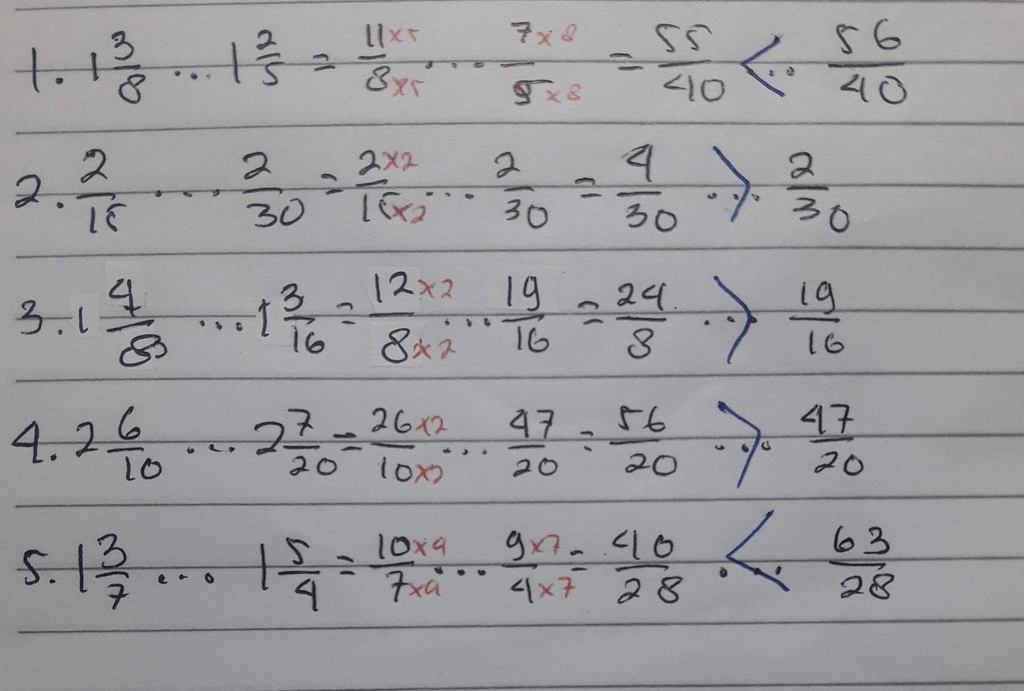 1. 1 3/8 ... 1 2/5 = 11×5/8×5 ... 7×8/5×8 = 55/40 <... 56/40
2. 2/15 ... 2/30 = 2×2/15×2 ... 2/30 = 4/30 ...> 2/30
3. 1 4/8 ... 1 3/16 = 12×2/8×2 ... 19/16 = 24/8 ...> 19/16
4. 2 6/10 ... 2 7/20 = 26×2/10×2 ... 47/20 = 56/20 ...> 47/20
5. 1 3/7 ... 1 5/4 = 10×4/7×4 ... 9×7/4×7 = 40/28 ...< 63/28